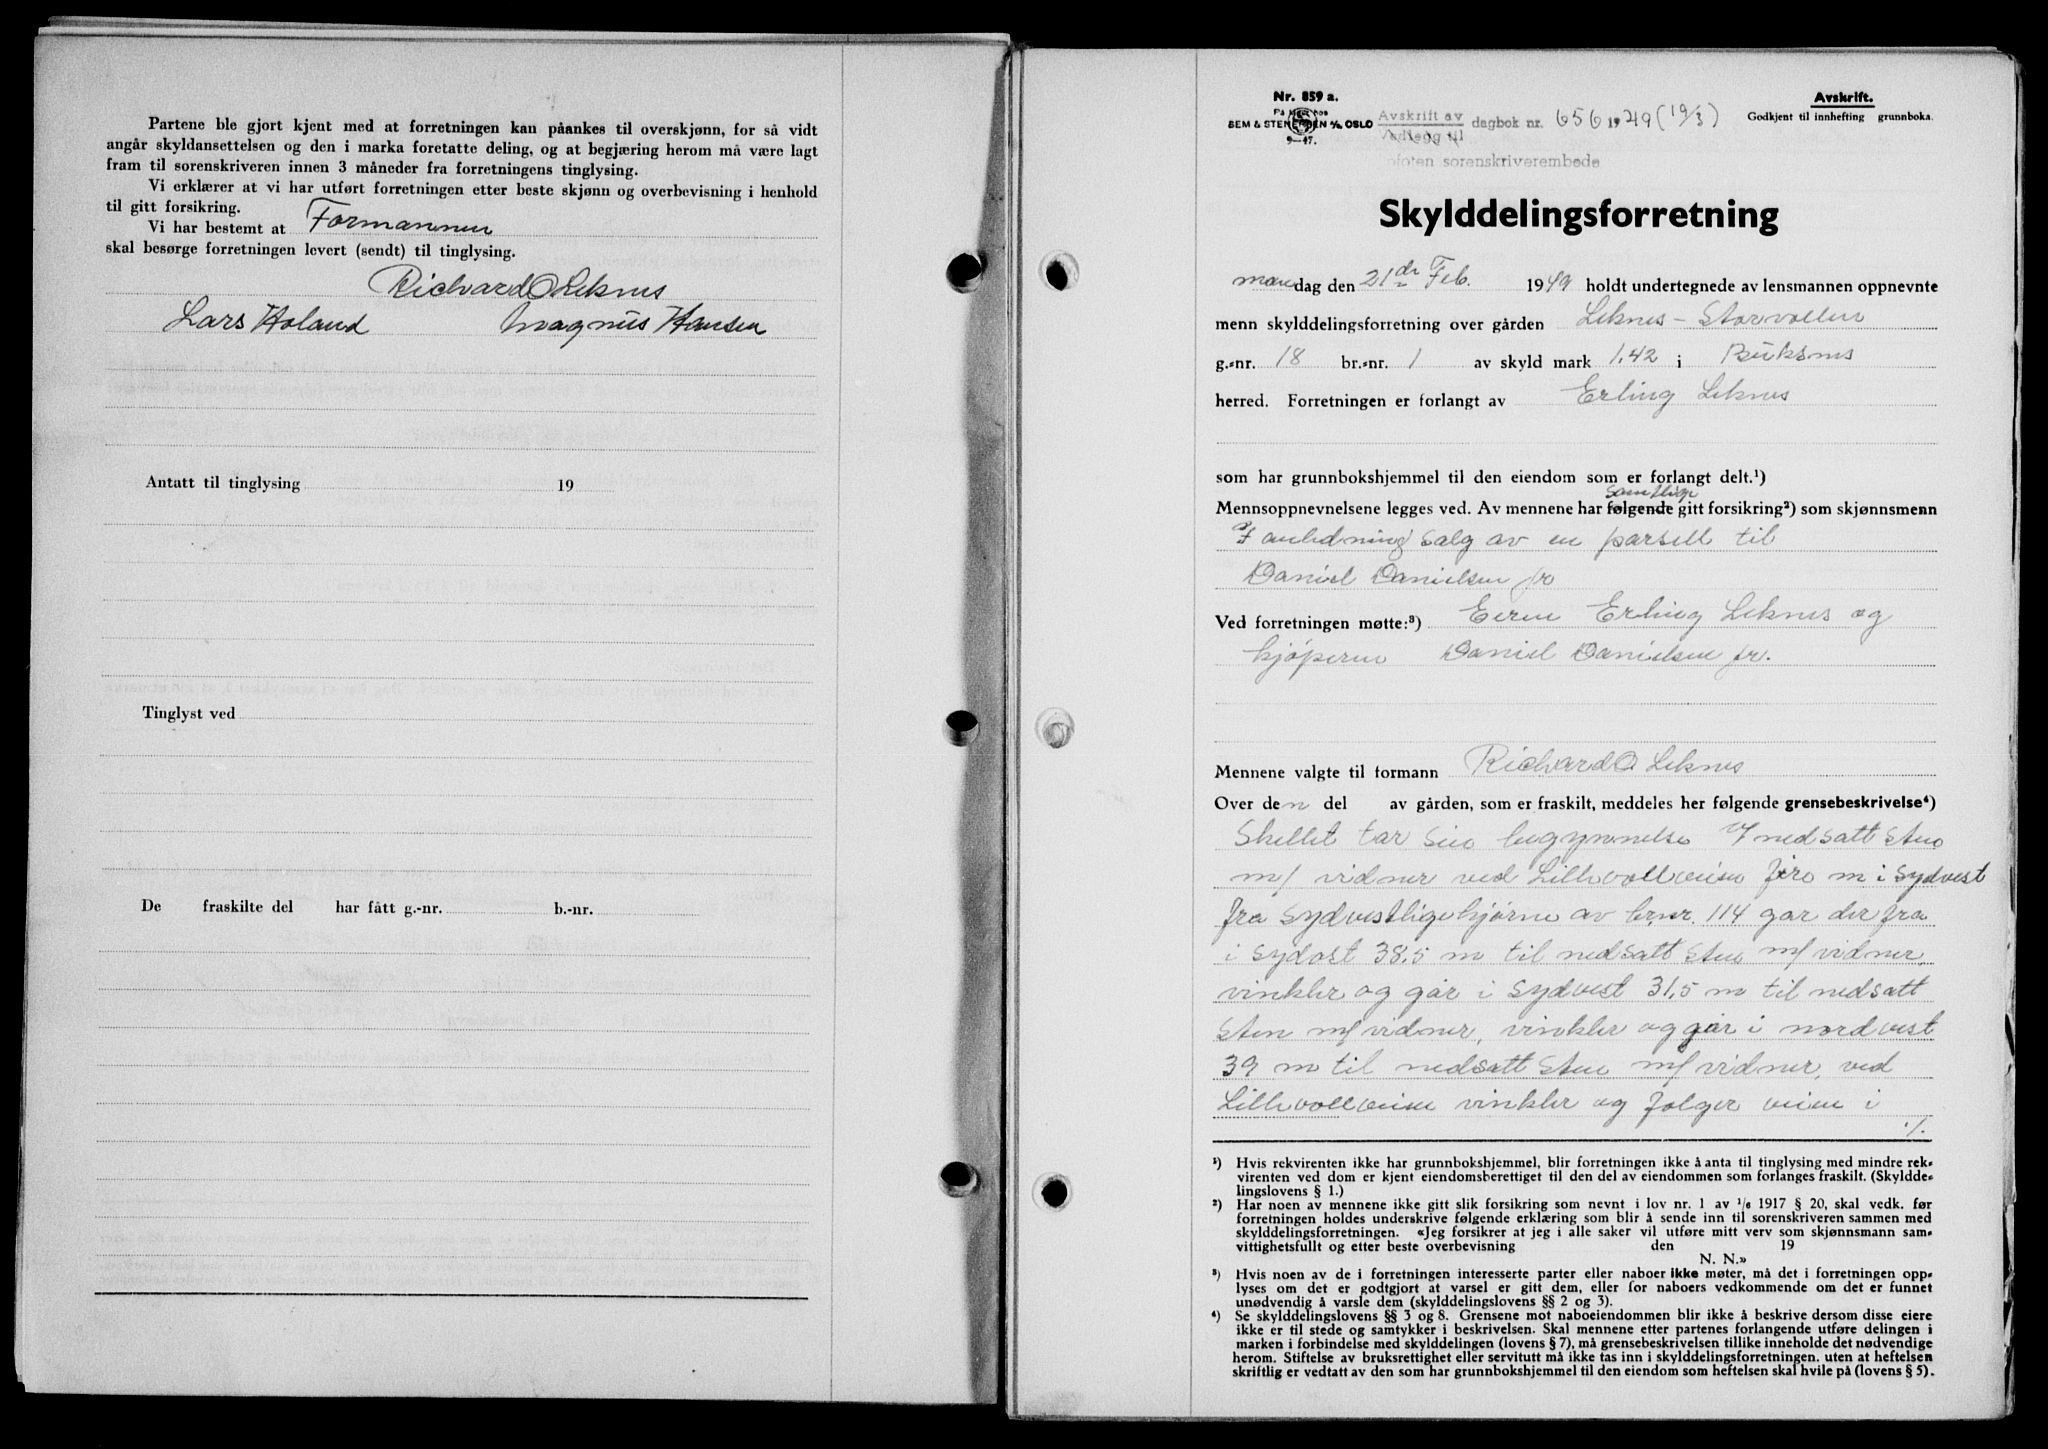 Partene ble gjort kjent med at forretningen kan påankes til overskjønn, for så vidt
angår skyldansettelsen og den i marka foretatte deling, og at begjæring herom må være lagt
fram til sorenskriveren innen 3 måneder fra forretningens tinglysing.
Vi erklærer at vi har utført forretningen etter beste skjønn og overbevisning i henhold
til gitt forsikring.
Vi har bestemt at Formannen
skal besørge forretningen levert (sendt) til tinglysing.
Richard O Leknes
Lars Holand Magnus Hansen
Antatt til tinglysing 19
Tinglyst ved
De fraskilte del har fått g.-nr. b.-nr.
Nr. 859 a.
På lager hos
SEM & STENERSEN A/S OSLO
9-47.
Avskrift.
Godkjent til innhefting grunnboka.
Avskrift av
Vedlegg til
dagbok nr. 656 1949 (19/3)
ofoten sorenskriverembede
Skylddelingsforretning
mandag den 21de Feb. 1949 holdt undertegnede av lensmannen oppnevnte
menn skylddelingsforretning over gården Leknes - Storvollen
g.-nr. 18 br.-nr. 1 av skyld mark 1,42 i Buksnes
herred. Forretningen er forlangt av Erling Leknes
som har grunnbokshjemmel til den eiendom som er forlangt delt.¹)
samtlige
Mennsoppnevnelsene legges ved. Av mennene har følgende gitt forsikring²) som skjønnsmenn
I anledning salg av en parsell til
Daniel Danielsen jr
Ved forretningen møtte:³) Eeren Erling Leknes og
kjøperen Daniel Danielsen jr.
Mennene valgte til formann Richard O Leknes
Over den del av gården, som er fraskilt, meddeles her følgende grensebeskrivelse⁴)
Skellet tar sin begynnelse i nedsatt sten
m/ vidner ved Lillevollveien fire m i sydvest
fra sydvestlige hjørne av br.nr. 114 går der fra
i sydost 38,5 m til nedsatt sten m/ vidner,
vinkler og går i sydvest 31,5 m til nedsatt
sten m/ vidner, vinkler og går i nordvest
39 m til nedsatt sten m/ vidner, ved
Lillevollveien vinkler og følger veien i
./.
¹) Hvis rekvirenten ikke har grunnbokshjemmel, blir forretningen ikke å anta til tinglysing med mindre rek-
virenten ved dom er kjent eiendomsberettiget til den del av eiendommen som forlanges fraskilt. (Skyldde-
lingslovens § 1.)
²) Har noen av mennene ikke gitt slik forsikring som nevnt i lov nr. 1 av 1/6 1917 § 20, skal vedk. før
forretningen holdes underskrive følgende erklæring som blir å sende inn til sorenskriveren sammen med
skylddelingsforretningen. «Jeg forsikrer at jeg i alle saker vil utføre mitt verv som skjønnsmann sam-
vittighetsfullt og etter beste overbevisning den 19
N. N.»
³) Hvis noen av de i forretningen interesserte parter eller naboer ikke møter, må det i forretningen opp-
lyses om det er godtgjort at varsel er gitt dem, eller for naboers vedkommende om det er funnet
unødvendig å varsle dem (skylddelingslovens §§ 2 og 3).
⁴) Se skylddelingslovens §§ 3 og 8. Grensene mot naboeiendommen blir ikke å beskrive dersom disse eiere
ikke er til stede og samtykker i beskrivelsen. Skal mennene etter partenes forlangende utføre delingen i
marken i forbindelse med skylddelingen (lovens § 7), må grensebeskrivelsen tillike inneholde det nødvendige
herom. Stiftelse av bruksrettighet eller servitutt må ikke tas inn i skylddelingsforretningen. uten at heftelsen
skriftlig er vedtatt av den som har grunnbokshjemmel til den eiendom som heftelsen skal hvile på (lovens § 5).